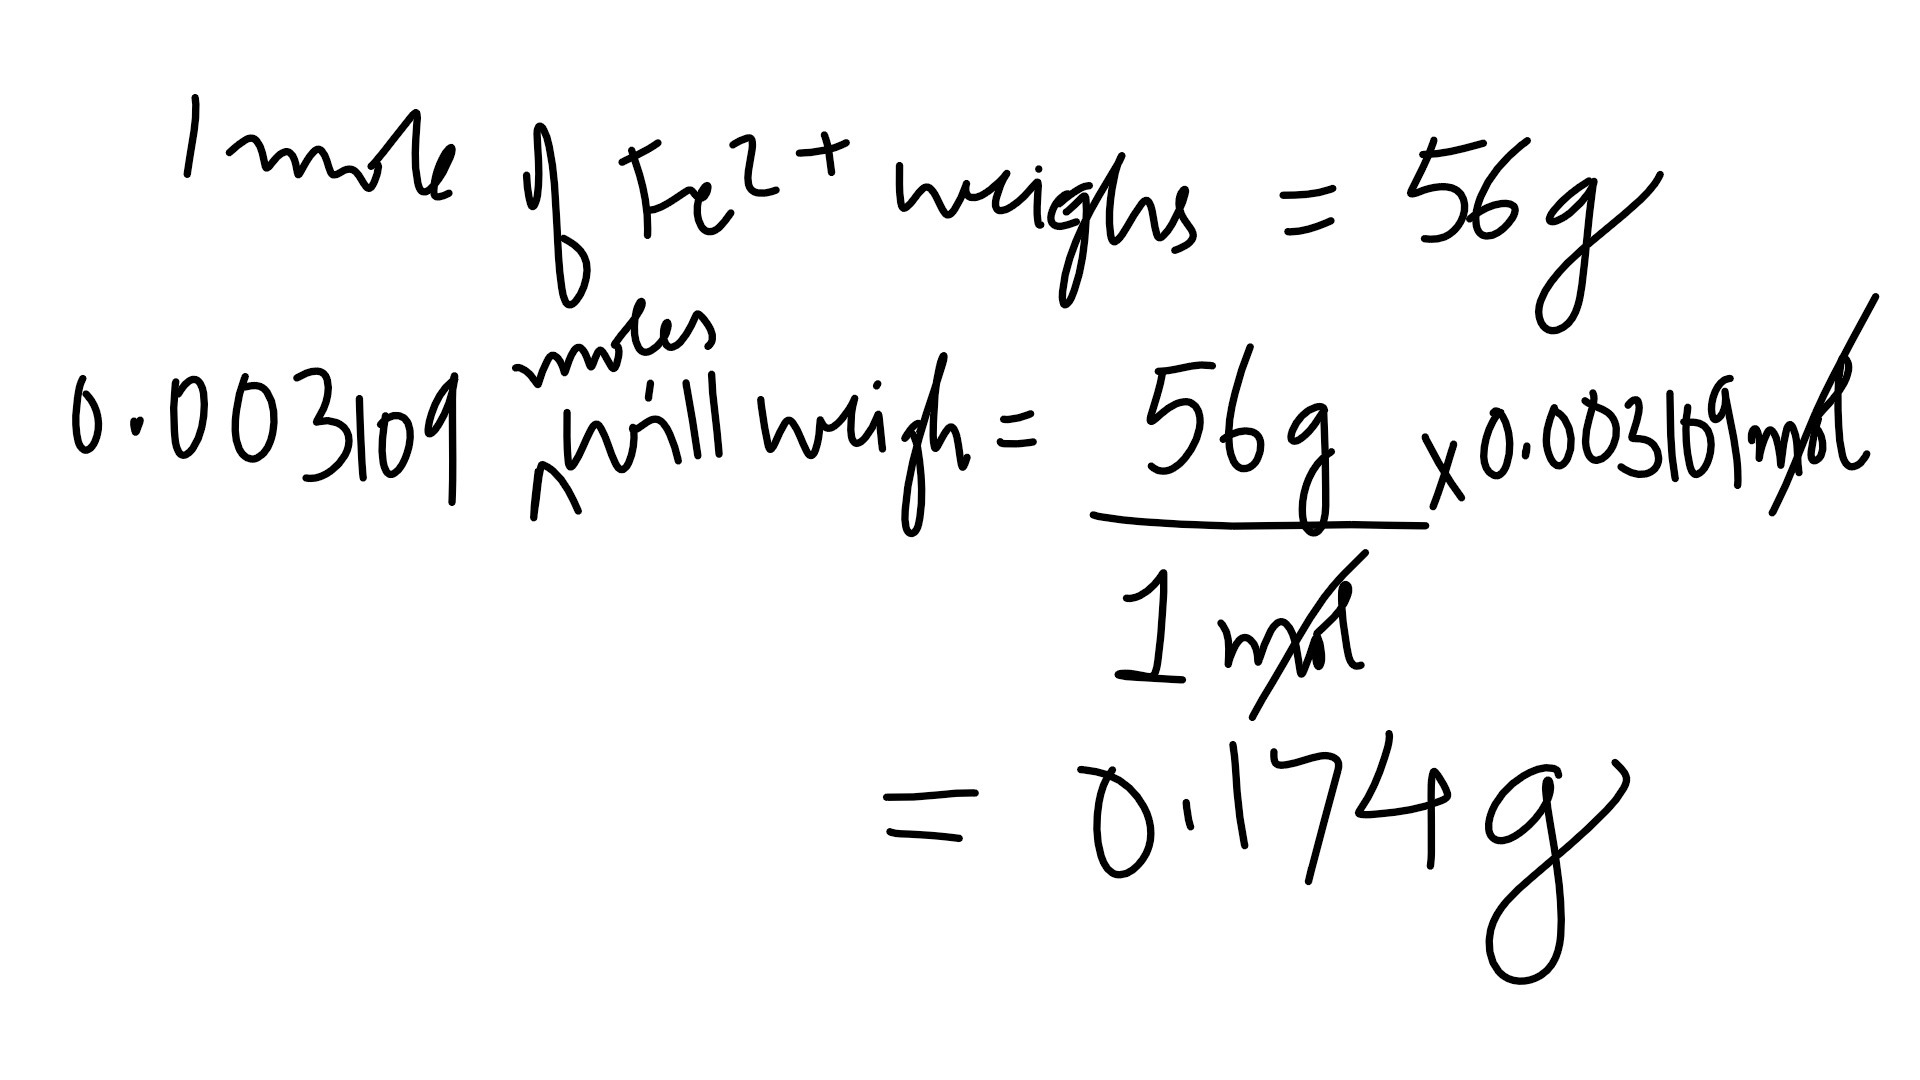 1 mole of Fe²⁺ weighs = 56g
0.003109 moles will weigh = 56g/1 mol × 0.003109 mol
= 0.174 g